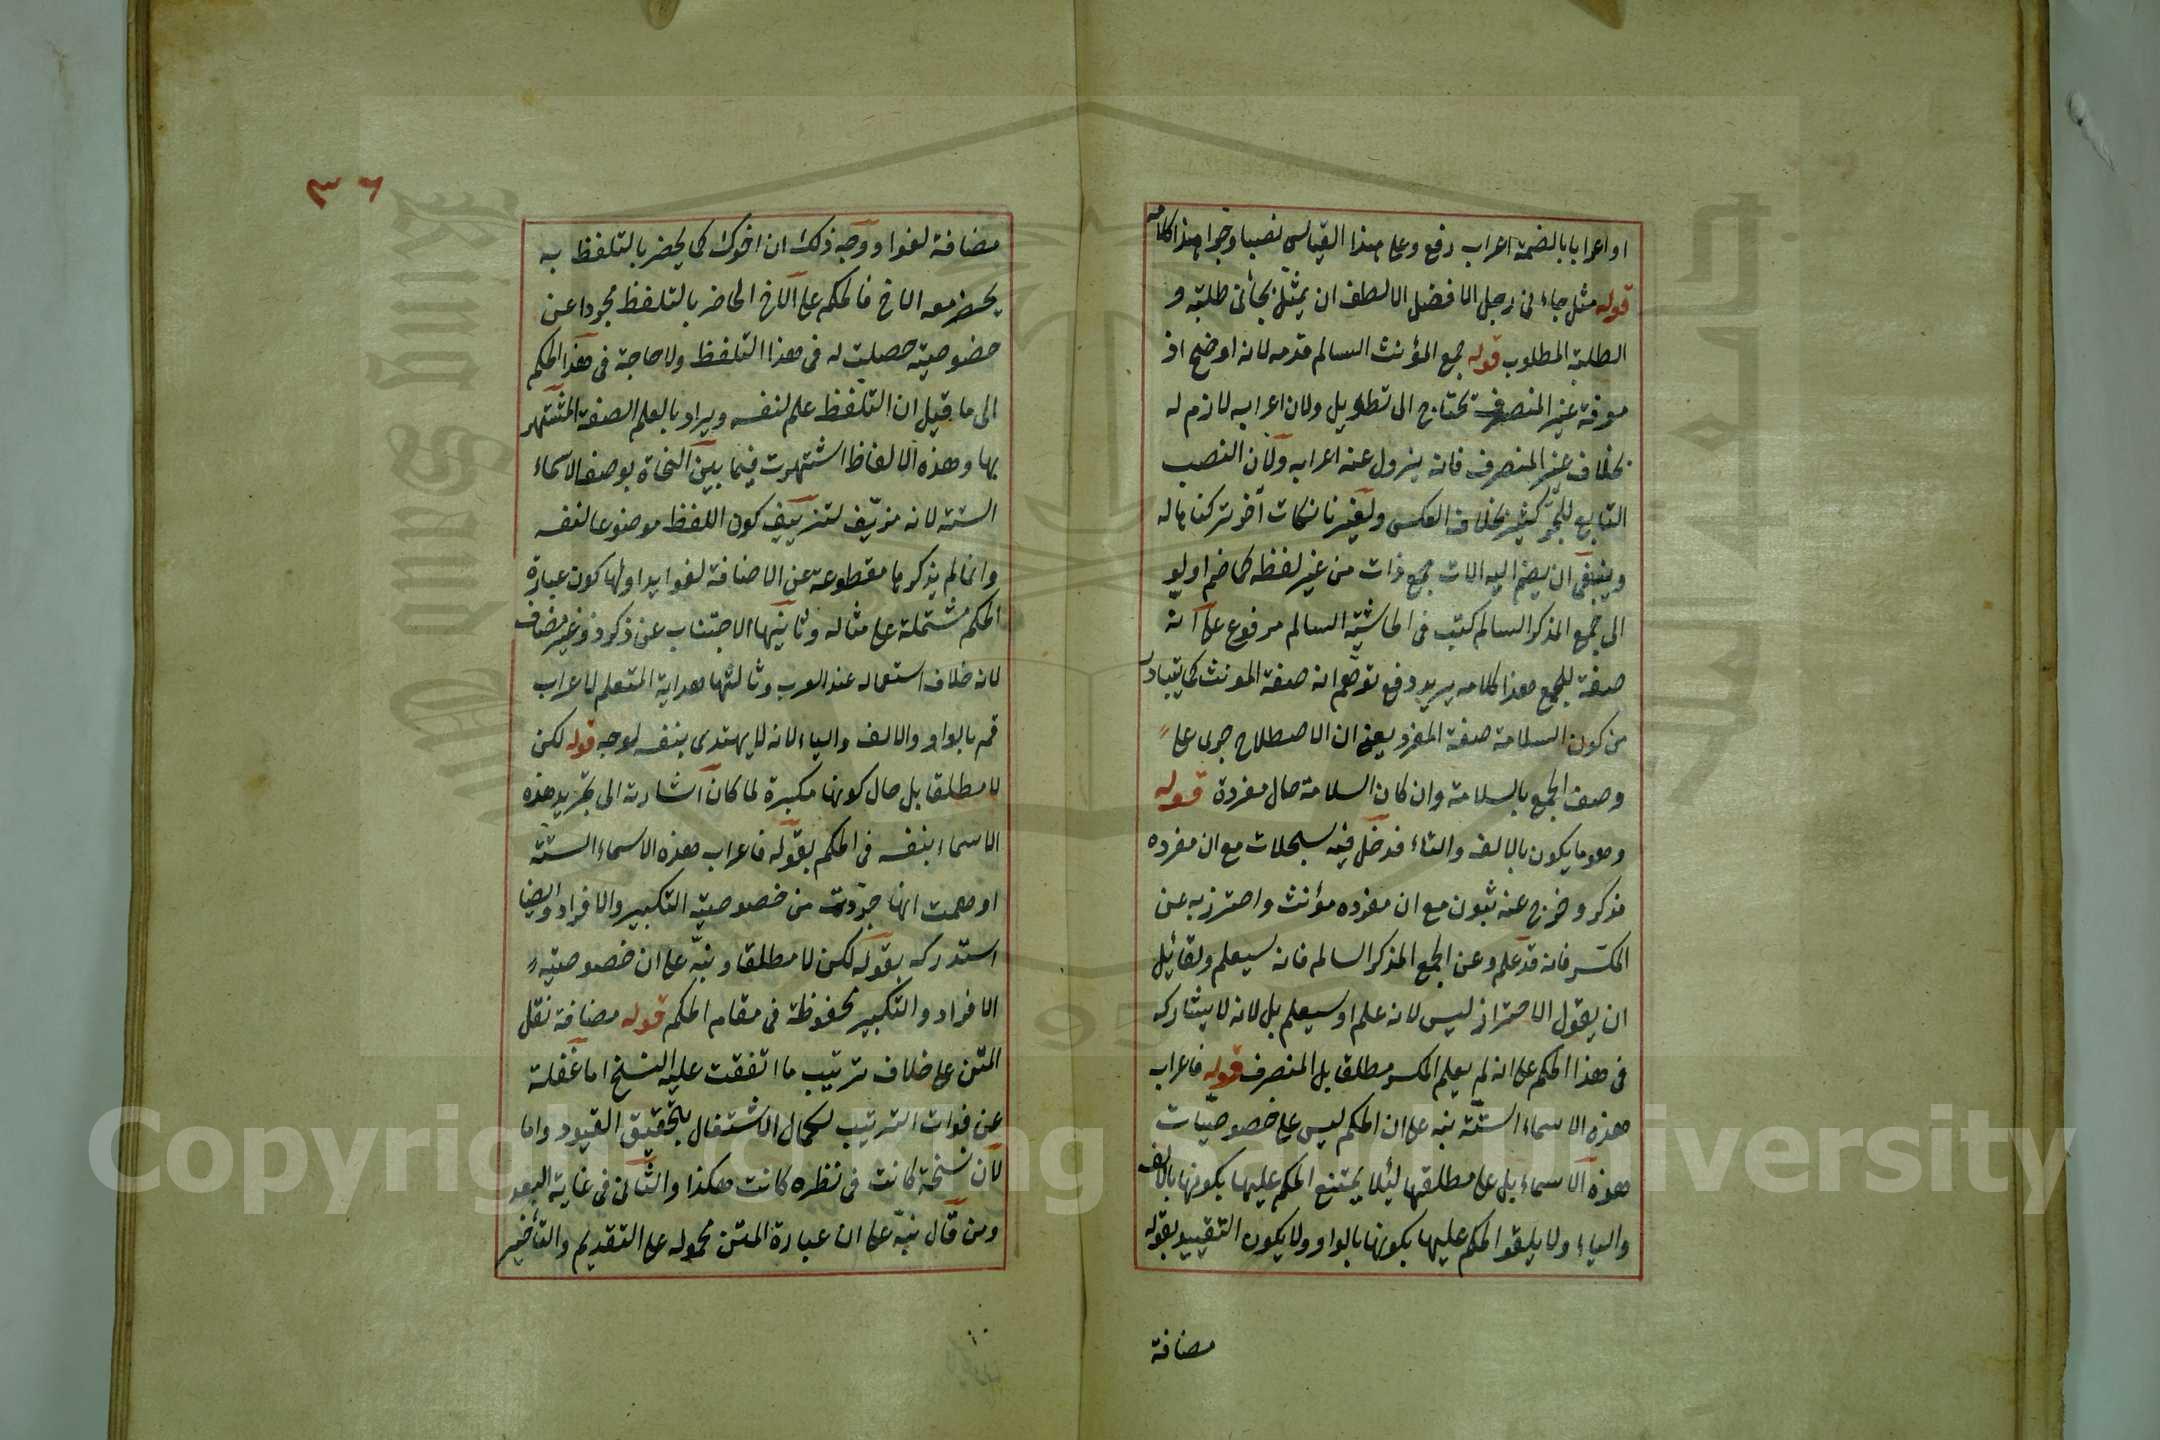 او اعرابا بالضمة اعراب رفع وعلى هذا القياس نصبا وجرا هذا كلامه
قوله مثل جاءنى رجل الا فضل الالطف ان يمثل بجاءنى طلبة و
الطلبة المطلوب قوله جمع المؤنث السالم قدمه لانه اوضح اذ
معرفة غير المنصرف تحتاج الى تطويل ولان اعرابه لازم له
بخلاف غير المنصرف فانه يزول عنه اعرابه ولان النصب
التابع للجر كثير بخلاف العكس ولغيرنا نكات أخر تركناها له
وينبغى ان يضم اليه الات جمع ذات من غير لفظه كما ضم اولو
الى جمع المذكر السالم كتب فى الحاشية السالم مرفوع على انه
صفة للجمع هذا كلامه يريد دفع توهم انه صفة المونث كما يتبادر
من كون السلامة صفة المفرد يعنى ان الاصطلاح جرى على
وصف الجمع بالسلامة وان كان السلامة حال مفردة قوله
وهو ما يكون بالالف والتاء فدخل فيه سجلات مع ان مفرده
مذكر وخرج عنه ثبون مع ان مفرده مؤنث واحترز به عن
المكسر فانه قد علم وعن الجمع المذكر السالم فانه سيعلم ولقائل
ان يقول الاحتراز ليس لانه علم او سيعلم بل لانه لا يشاركه
فى هذا الحكم على انه لم يعلم المكسر مطلقا بل المنصرف قوله فاعراب
هذه الاسماء الستة نبه على ان الحكم ليس على خصوصيات
هذه الاسماء بل على مطلقها ليلا يمتنع الحكم عليها بكونها بالالف
والياء ولا يلغو الحكم عليها بكونها بالواو ولا يكون التقييد بقوله
مضافة
٣٦
مضافة لغوا ووجه ذلك ان اخوك كما يحضر بالتلفظ به
يحضر معه الاخ فالحكم على الاخ الحاضر بالتلفظ مجردا عن
خصوصية حصلت له فى هذا التلفظ ولا حاجة فى هذا الحكم
الى ما قيل ان التلفظ علم لنفسه ويراد بالعلم الصفة المشتهر
بها وهذه الالفاظ اشتهرت فيما بين النحاة بوصف الاسماء
الستة لانه مزيف لتزييف كون اللفظ موضوعا لنفسه
وانما لم يذكرها مقطوعة عن الاضافة لفوايد اولها كون عبارة
الحكم مشتملة على مثاله وثانيها الاجتناب عن ذكر ذو غير مضاف
لانه خلاف استعماله عند العرب وثالثها هداية المتعلم لاعراب
فم بالواو والالف والياء لانه لا يهتدى بنفسه لوجه قوله لكن
لا مطلقا بل حال كونها مكبرة لما كان اشارته الى تجريد هذه
الاسماء بنفسه فى الحكم بقوله فاعراب هذه الاسماء الستة
اوهمت انها جردت من خصوصية التكبير والافراد وايضا
استدركه بقوله لكن لا مطلقا ونبه على ان خصوصية
الافراد والتكبير محفوظة فى مقام الحكم قوله مضافة نقل
المتن على خلاف ترتيب ما اتفقت عليه النسخ اما غفلة
عن فوات الترتيب لكمال الاشتغال بتحقيق القيود واما
لان نسخة كانت فى نظره كانت هكذا والثانى فى غاية البعد
ومن قال نبه على ان عبارة المتن محموله على التقديم والتأخير
Copyright © King Saud University